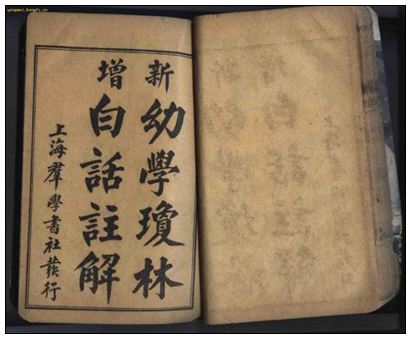 新增
幼學瓊林
白話註解
上海羣學書社發行